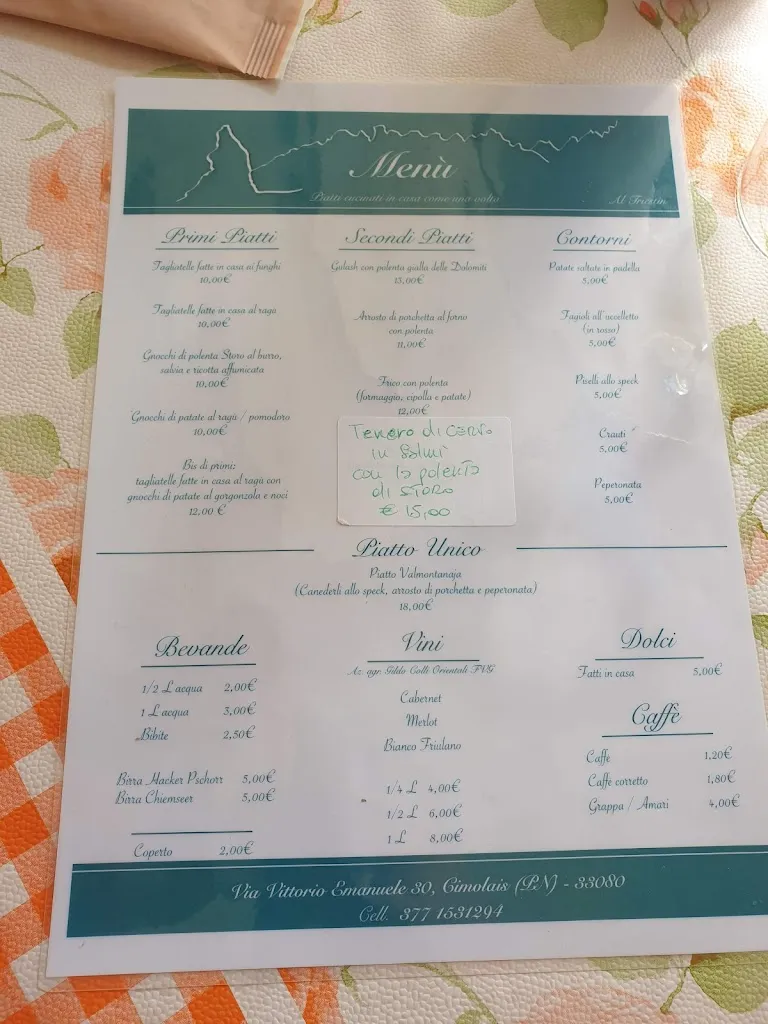 Menù
Piatti cucinati in casa come una volta
Primi Piatti
Tagliatelle fatte in casa ai funghi
10,00€
Tagliatelle fatte in casa al ragù
10,00€
Gnocchi di polenta Storo al burro,
salvia e ricotta affumicata
10,00€
Gnocchi di patate al ragù / pomodoro
10,00€
Bis di primi:
tagliatelle fatte in casa al ragù con
gnocchi di patate al gorgonzola e noci
12,00 €
Secondi Piatti
Gulash con polenta gialla delle Dolomiti
13,00€
Arrosto di porchetta al forno
con polenta
11,00€
Frico con polenta
(formaggio, cipolla e patate)
12,00€
Tenero di cervo
in Salmì
con la polenta
di STORO
€ 15,00
Contorni
Patate saltate in padella
5,00€
Fagioli all'uccelletto
(in rosso)
5,00€
Piselli allo speck
5,00€
Crauti
5,00€
Peperonata
5,00€
Piatto Unico
Piatto Valmontanaja
(Canederli allo speck, arrosto di porchetta e peperonata)
18,00€
Bevande
1/2 L acqua 2,00€
1 L acqua 3,00€
Bibite 2,50€
Birra Hacker Pschorr 5,00€
Birra Chiemseer 5,00€
Coperto 2,00€
Vini
Az. agr. Gildo Colli Orientali FVG
Cabernet
Merlot
Bianco Friulano
1/4 L 4,00€
1/2 L 6,00€
1 L 8,00€
Dolci
Fatti in casa 5,00€
Caffè
Caffè 1,20€
Caffè corretto 1,80€
Grappa / Amari 4,00€
Via Vittorio Emanuele 30, Cimolais (PN) - 33080
Cell. 377 1531294